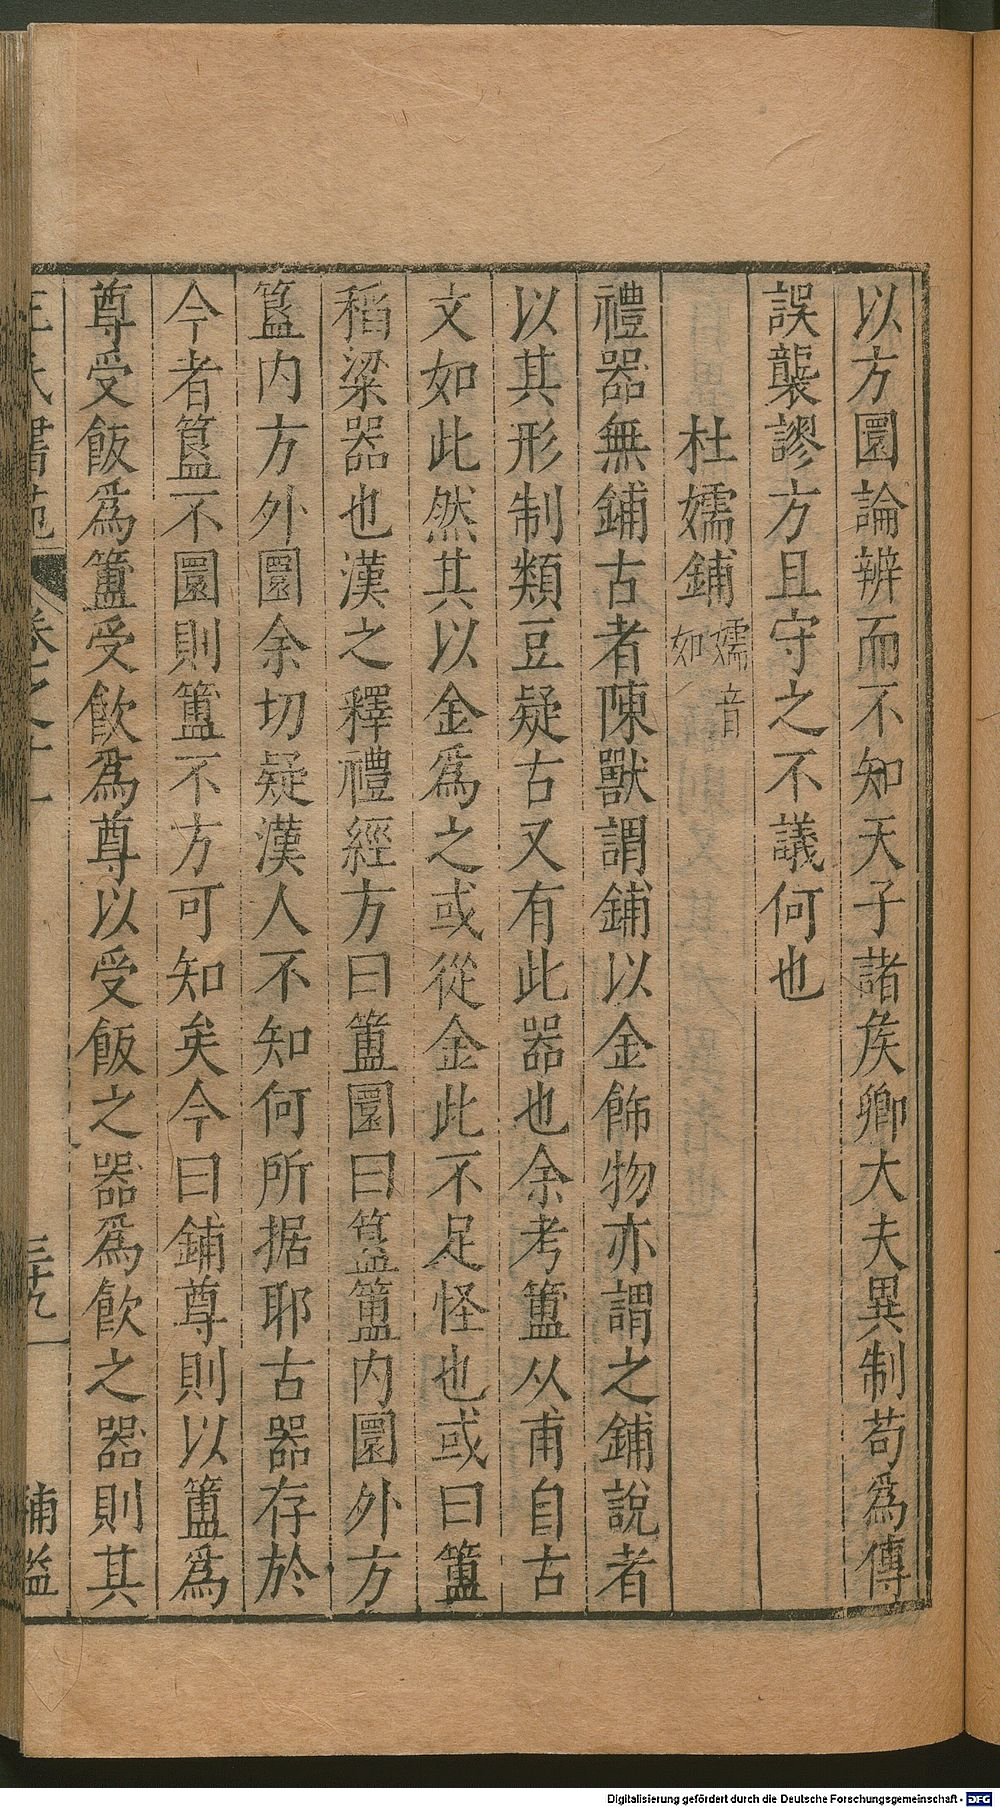 以方圜論辨而不知天子諸矦卿大夫異制苟爲傳
誤襲謬方且守之不議何也
杜嬬鋪嬬音如
禮器無鋪古者陳獸謂鋪以金飾物亦謂之鋪說者
以其形制類豆疑古又有此器也余考簠从甫自古
文如此然其以金爲之或從金此不足怪也或曰簠
稻粱器也漢之釋禮經方曰簠圜曰簋簠内圜外方
簋内方外圜余切疑漢人不知何所据耶古器存於
今者簋不圜則簠不方可知矣今曰鋪尊則以簠爲
尊受飯爲簠受飲爲尊以受飯之器爲飲之器則其
王氏書苑 卷之十一 三十九 補益
Digitalisierung gefördert durch die Deutsche Forschungsgemeinschaft - DFG